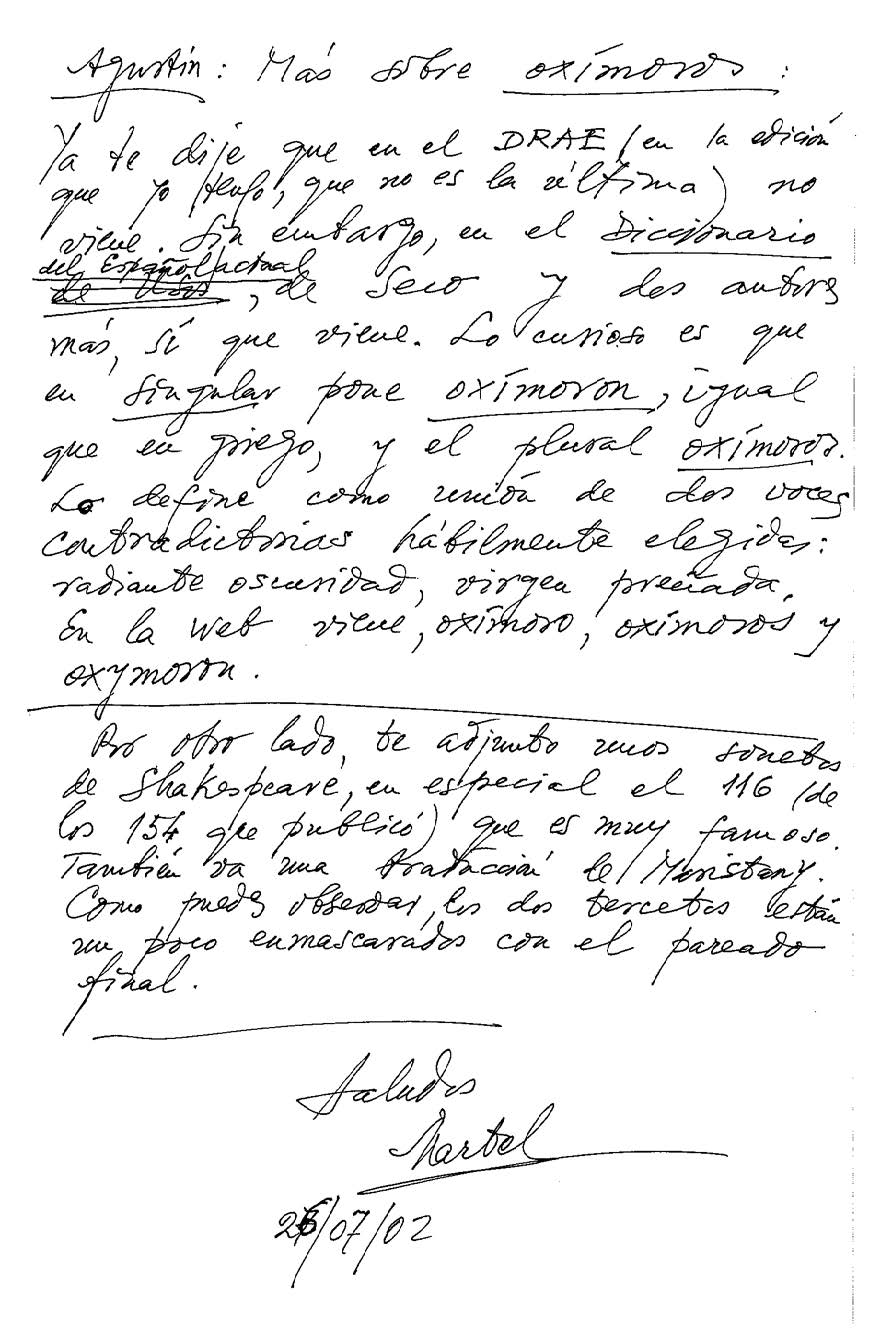 Agustín: Más sobre oxímoros:
Ya te dije que en el DRAE (en la edición
que yo tengo, que no es la última) no
viene. Sin embargo, en el Diccionario
del Español actual
de Usos, de Seco y dos autores
más, sí que viene. Lo curioso es que
en singular pone oxímoron, igual
que en griego, y el plural oxímoros.
Lo define como unión de dos voces
contradictorias hábilmente elegidas:
radiante oscuridad, virgen preñada.
En la web viene, oxímoro, oxímoros y
oxymoron.
Por otro lado, te adjunto unos sonetos
de Shakespeare, en especial el 116 (de
los 154 que publicó) que es muy famoso.
También va una traducción de Maristany.
Como puedes observar, los dos tercetos están
un poco enmascarados con el pareado
final.
Saludos
Martel
/07/02